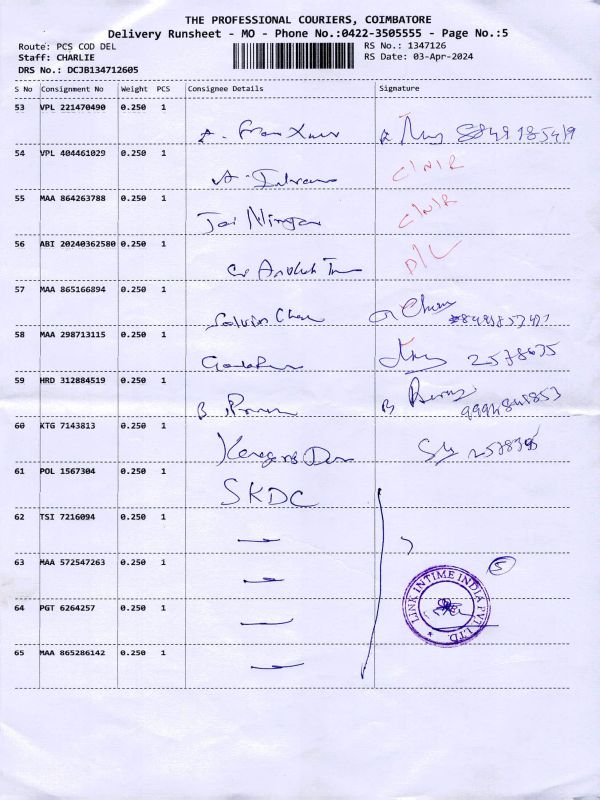 THE PROFESSIONAL COURIERS, COIMBATORE
Delivery Runsheet - MO - Phone No.:0422-3505555 - Page No.:5
Route: PCS COD DEL
RS No.: 1347126
Staff: CHARLIE
RS Date: 03-Apr-2024
DRS No.: DCJB134712605
S No Consignment No Weight PCS Consignee Details Signature
53 VPL 221470490 0.250 1
54 VPL 404461029 0.250 1
C/N/R
55 MAA 864263788 0.250 1
C/N/R
56 ABI 20240362580 0.250 1
D/L
57 MAA 865166894 0.250 1
58 MAA 298713115 0.250 1
2578635
59 HRD 312884519 0.250 1
B
60 KTG 7143813 0.250 1
61 POL 1567304 0.250 1 SKDC
62 TSI 7216094 0.250 1
63 MAA 572547263 0.250 1
5
LINK INTIME INDIA PVT. LTD.
64 PGT 6264257 0.250 1
65 MAA 865286142 0.250 1